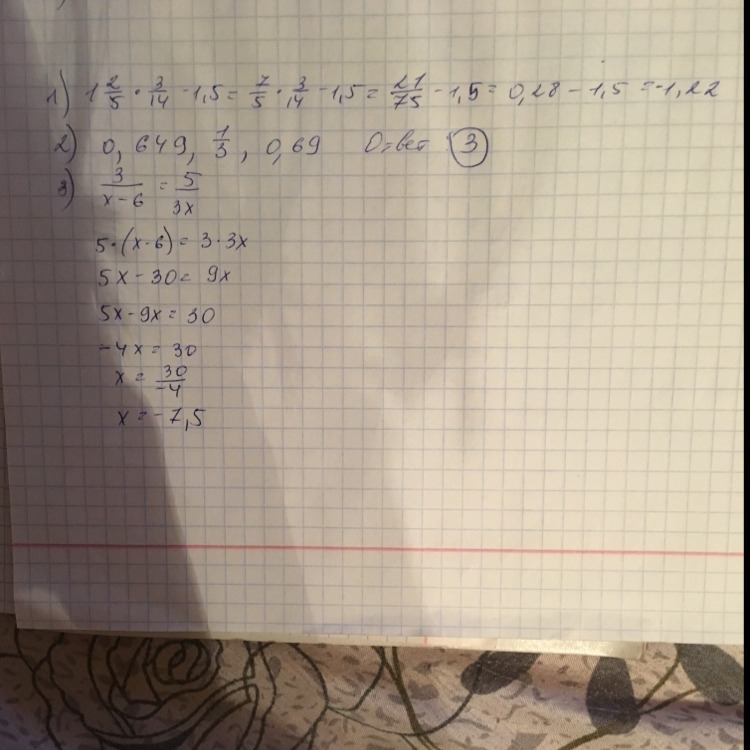 1) 1 2/5 · 3/14 - 1,5 = 7/5 · 3/14 - 1,5 = 21/75 - 1,5 = 0,28 - 1,5 = -1,22
2) 0,649, 1/3, 0,69 Ответ: 3
3) 3/(x-6) = 5/3x
5·(x-6) = 3·3x
5x - 30 = 9x
5x - 9x = 30
-4x = 30
x = 30/-4
x = -7,5